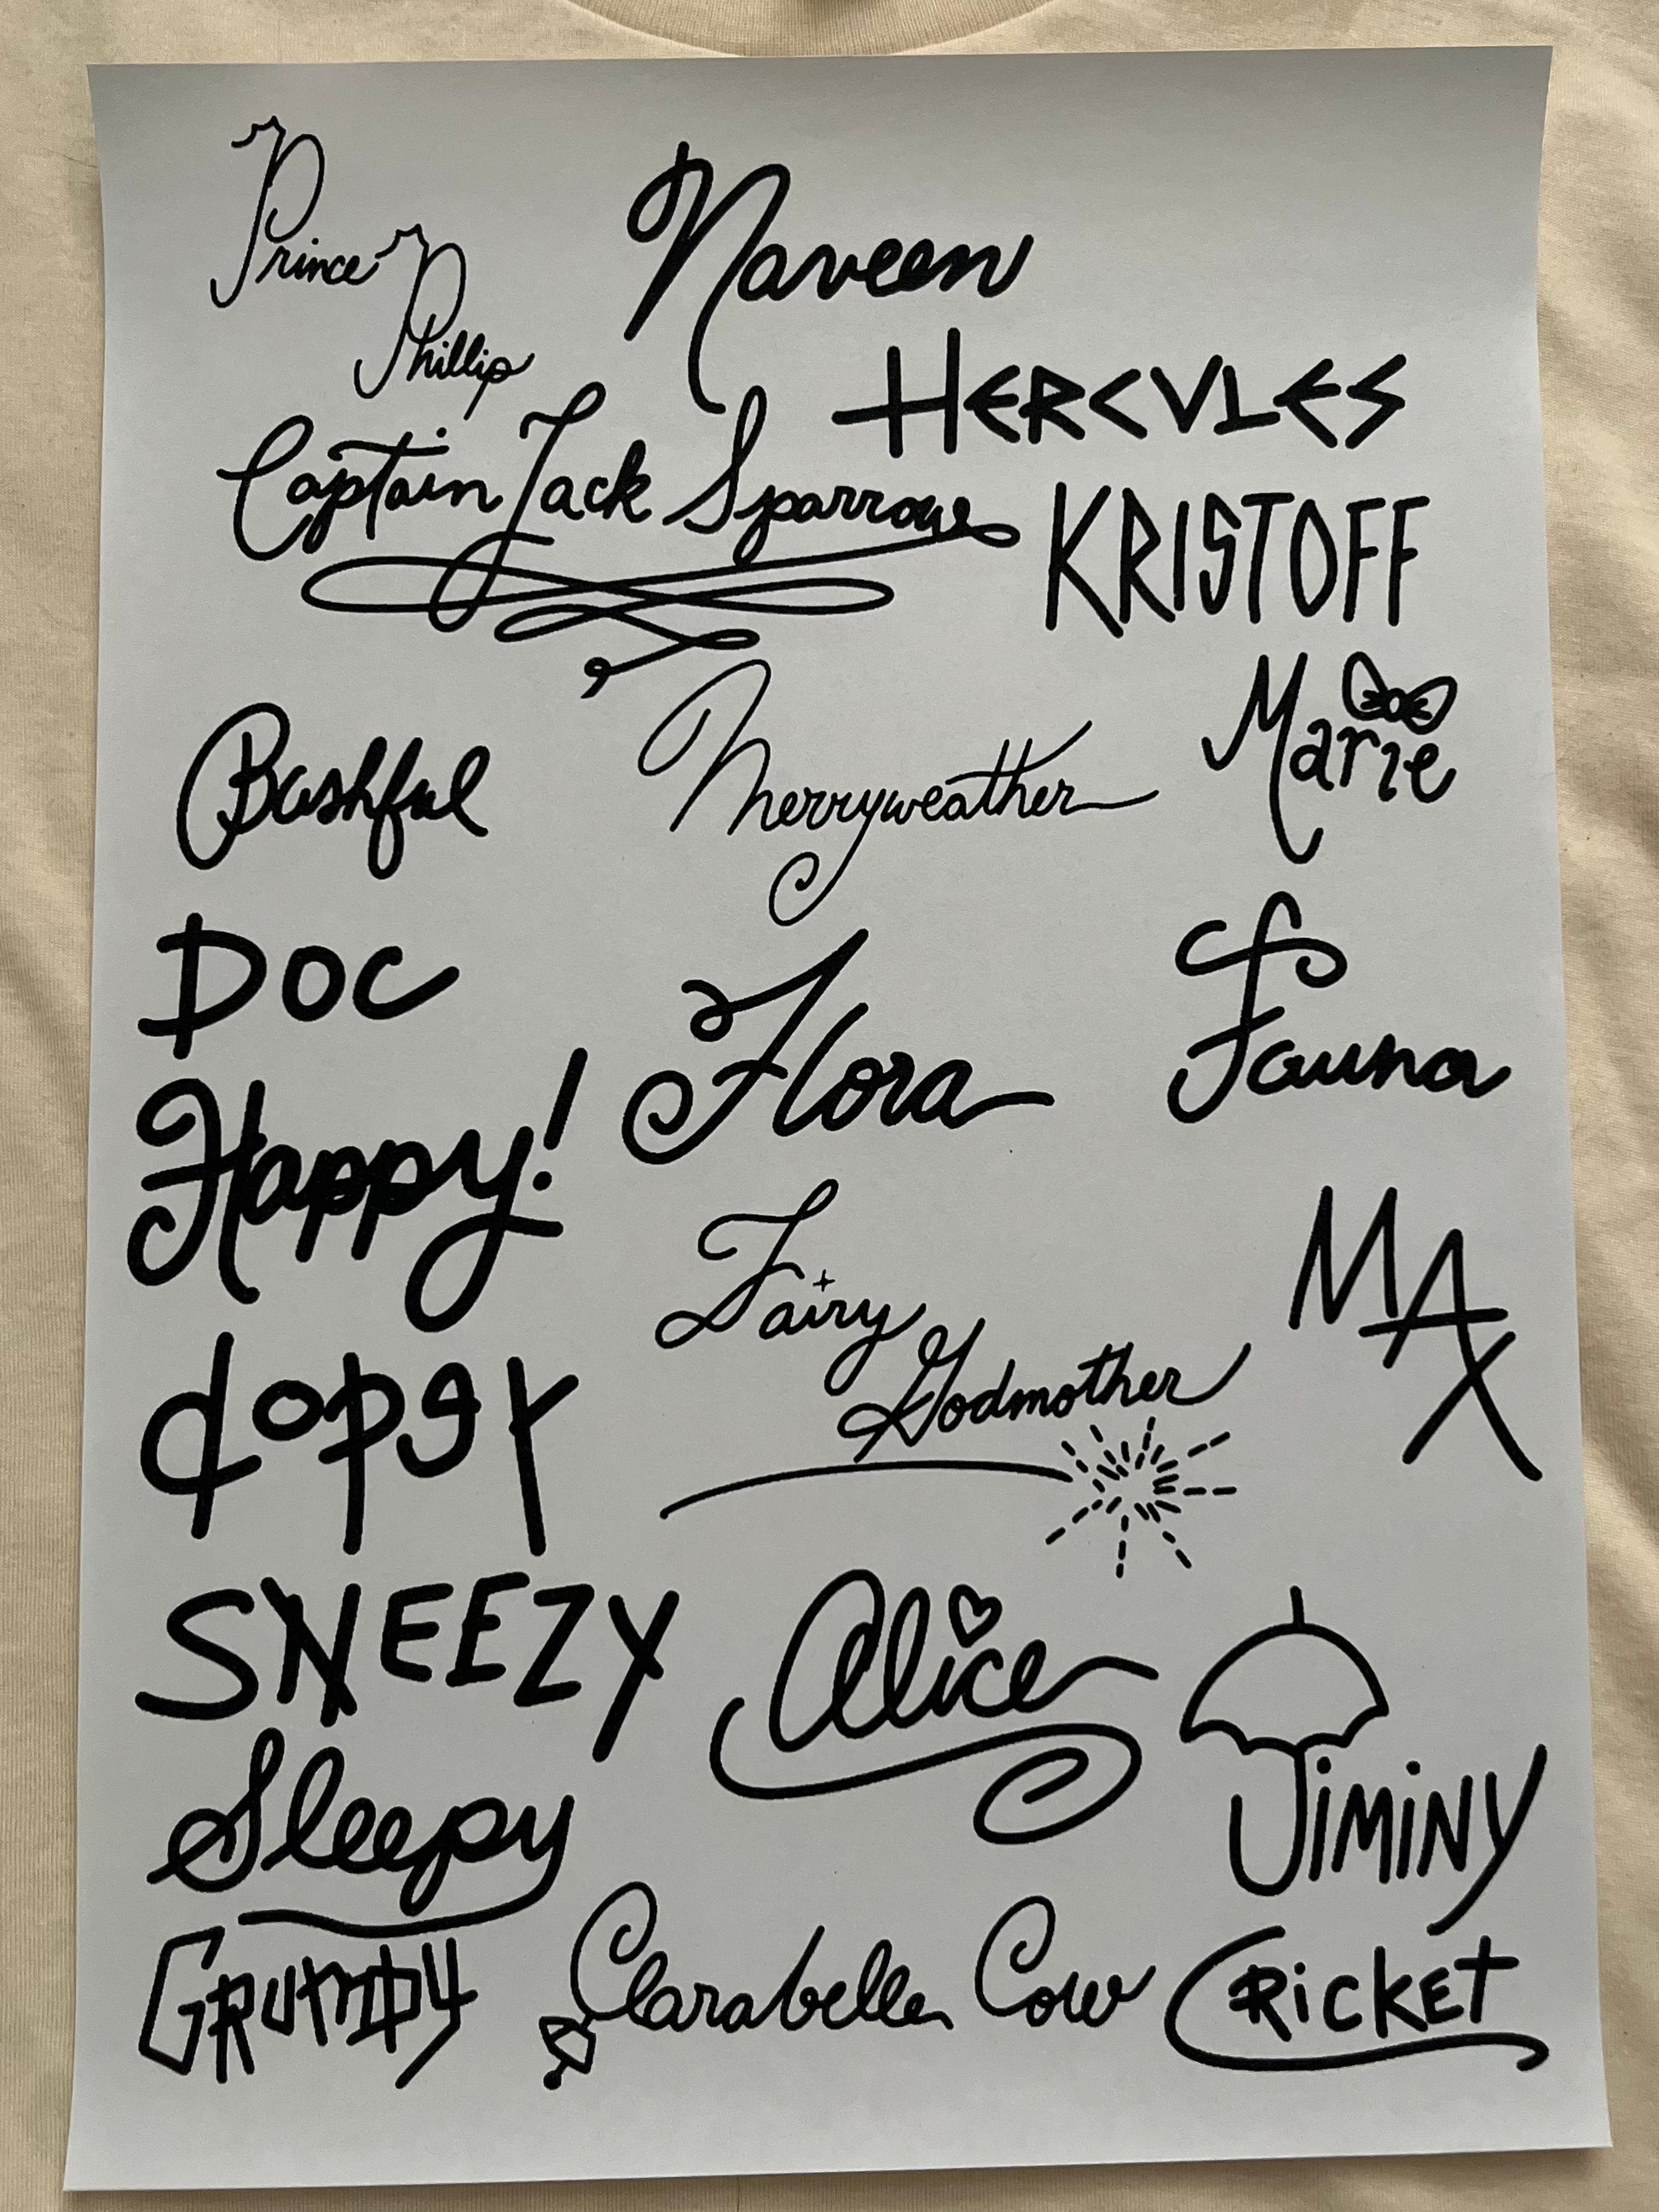 Prince
Phillip
Naveen
HERCULES
Captain Jack Sparrow
KRISTOFF
Bashful
Merryweather
Marie
DOC
Flora
Fauna
Happy!
Fairy
Godmother
MAX
dopey
SNEEZY
Alice
JiMiNY
CRiCKET
Sleepy
GRUMPY
Clarabelle Cow